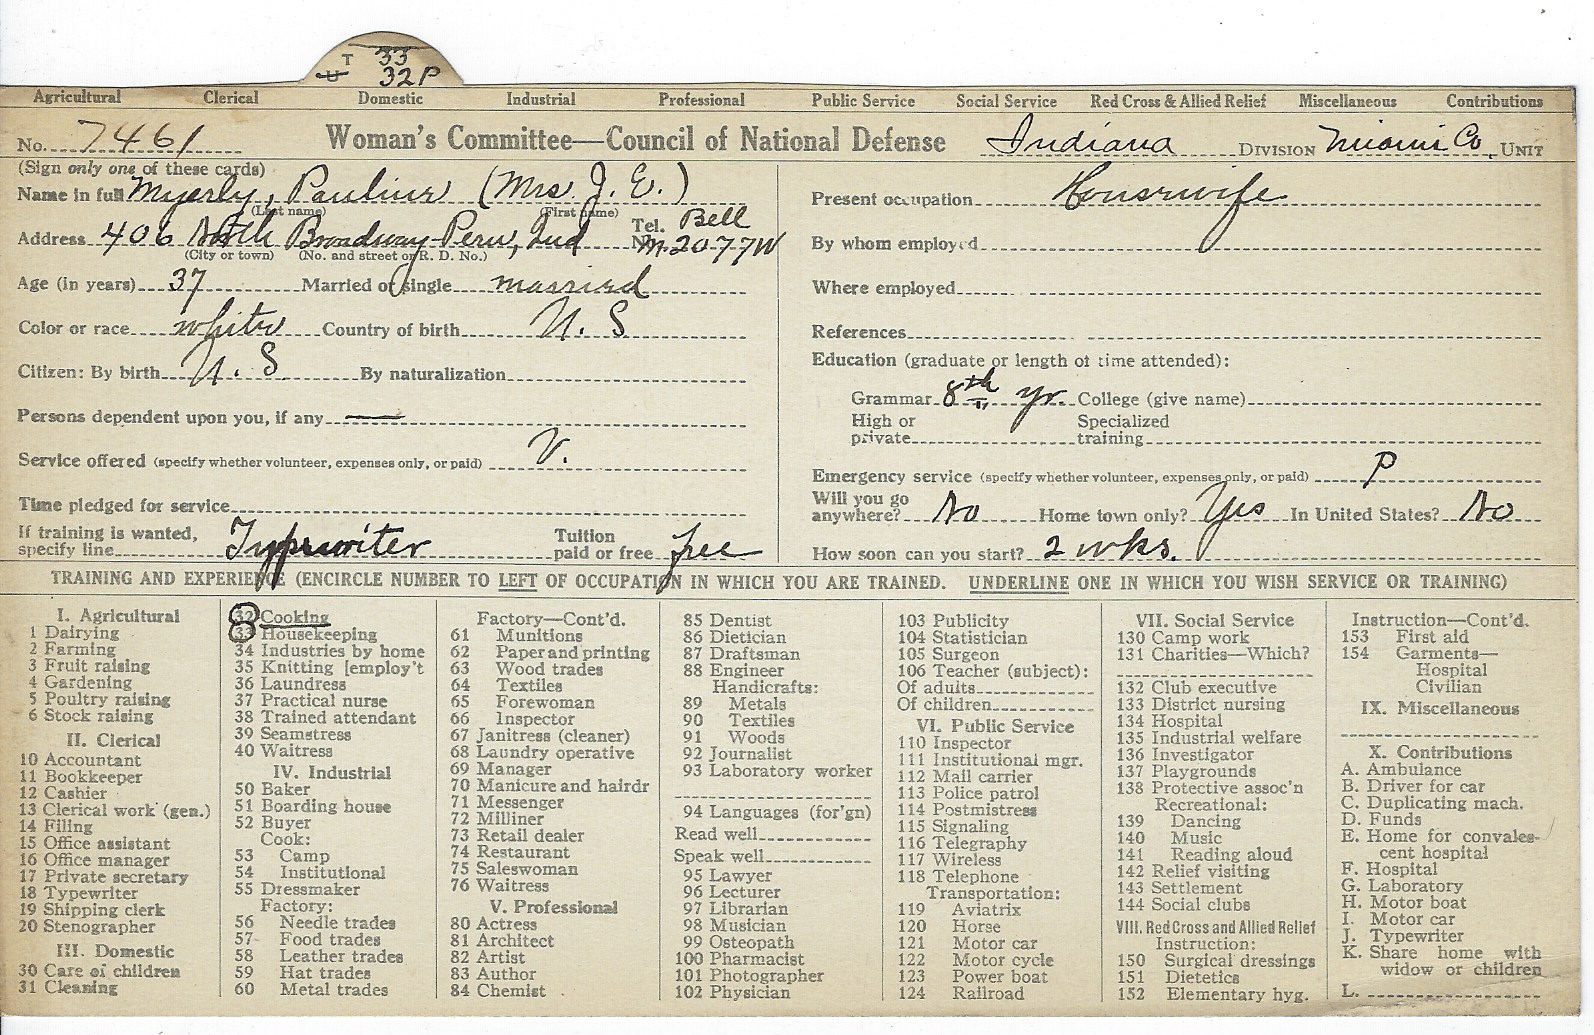 T 33
U 32P
Agricultural Clerical Domestic Industrial Professional Public Service Social Service Red Cross & Allied Relief Miscellaneous Contributions
No. 7461 Woman's Committee—Council of National Defense Indiana DIVISION Miami Co. UNIT
(Sign only one of these cards)
Name in full Myerly, Pauline (Mrs. J. E.)
(Last name) (First name)
Address 406 North Broadway Peru, Ind Tel. No. Bell M. 2077W
(City or town) (No. and street or R. D. No.)
Age (in years) 37 Married or single married
Color or race white Country of birth U. S
Citizen: By birth U. S By naturalization
Persons dependent upon you, if any —
Service offered (specify whether volunteer, expenses only, or paid) V.
Time pledged for service
If training is wanted, specify line Typewriter Tuition paid or free free
Present occupation Housewife
By whom employed
Where employed
References
Education (graduate or length of time attended):
Grammar 8th yr. College (give name)
High or private Specialized training
Emergency service (specify whether volunteer, expenses only, or paid) P
Will you go anywhere? No Home town only? Yes In United States? No
How soon can you start? 2 wks.
TRAINING AND EXPERIENCE (ENCIRCLE NUMBER TO LEFT OF OCCUPATION IN WHICH YOU ARE TRAINED. UNDERLINE ONE IN WHICH YOU WISH SERVICE OR TRAINING)
I. Agricultural
1 Dairying
2 Farming
3 Fruit raising
4 Gardening
5 Poultry raising
6 Stock raising
II. Clerical
10 Accountant
11 Bookkeeper
12 Cashier
13 Clerical work (gen.)
14 Filing
15 Office assistant
16 Office manager
17 Private secretary
18 Typewriter
19 Shipping clerk
20 Stenographer
III. Domestic
30 Care of children
31 Cleaning
32 Cooking
33 Housekeeping
34 Industries by home
35 Knitting [employ't
36 Laundress
37 Practical nurse
38 Trained attendant
39 Seamstress
40 Waitress
IV. Industrial
50 Baker
51 Boarding house
52 Buyer
Cook:
53 Camp
54 Institutional
55 Dressmaker
Factory:
56 Needle trades
57 Food trades
58 Leather trades
59 Hat trades
60 Metal trades
Factory—Cont'd.
61 Munitions
62 Paper and printing
63 Wood trades
64 Textiles
65 Forewoman
66 Inspector
67 Janitress (cleaner)
68 Laundry operative
69 Manager
70 Manicure and hairdr
71 Messenger
72 Milliner
73 Retail dealer
74 Restaurant
75 Saleswoman
76 Waitress
V. Professional
80 Actress
81 Architect
82 Artist
83 Author
84 Chemist
85 Dentist
86 Dietician
87 Draftsman
88 Engineer
Handicrafts:
89 Metals
90 Textiles
91 Woods
92 Journalist
93 Laboratory worker
94 Languages (for'gn)
Read well
Speak well
95 Lawyer
96 Lecturer
97 Librarian
98 Musician
99 Osteopath
100 Pharmacist
101 Photographer
102 Physician
103 Publicity
104 Statistician
105 Surgeon
106 Teacher (subject):
Of adults
Of children
VI. Public Service
110 Inspector
111 Institutional mgr.
112 Mail carrier
113 Police patrol
114 Postmistress
115 Signaling
116 Telegraphy
117 Wireless
118 Telephone
Transportation:
119 Aviatrix
120 Horse
121 Motor car
122 Motor cycle
123 Power boat
124 Railroad
VII. Social Service
130 Camp work
131 Charities—Which?
132 Club executive
133 District nursing
134 Hospital
135 Industrial welfare
136 Investigator
137 Playgrounds
138 Protective assoc'n
Recreational:
139 Dancing
140 Music
141 Reading aloud
142 Relief visiting
143 Settlement
144 Social clubs
VIII. Red Cross and Allied Relief
Instruction:
150 Surgical dressings
151 Dietetics
152 Elementary hyg.
Instruction—Cont'd.
153 First aid
154 Garments—
Hospital
Civilian
IX. Miscellaneous
X. Contributions
A. Ambulance
B. Driver for car
C. Duplicating mach.
D. Funds
E. Home for convales-
cent hospital
F. Hospital
G. Laboratory
H. Motor boat
I. Motor car
J. Typewriter
K. Share home with
widow or children
L.